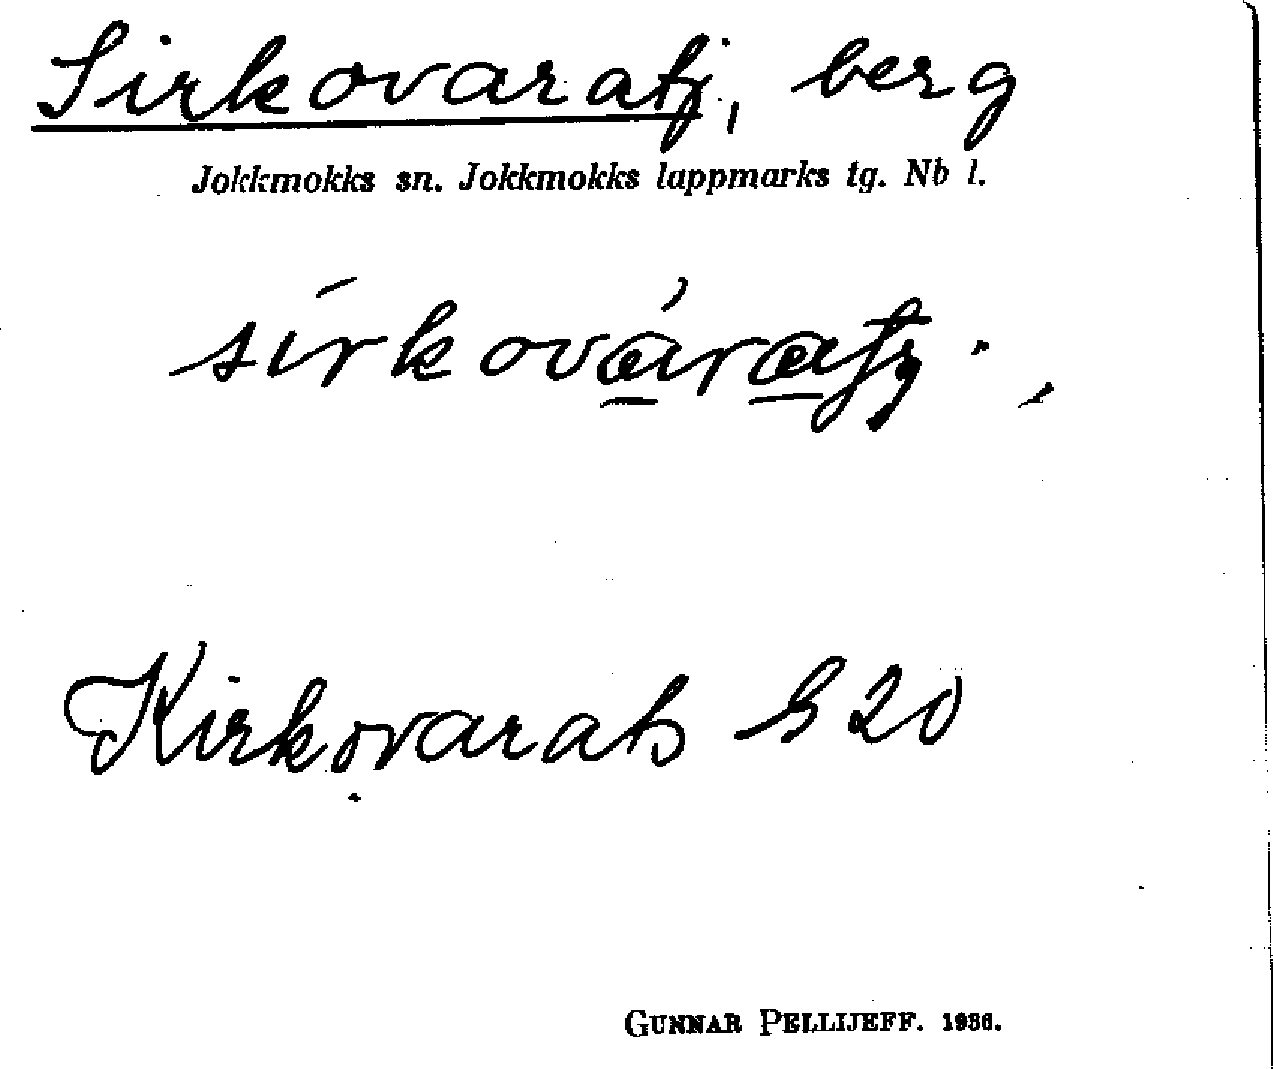 Sirkovaratj, berg
Jokkmokks sn. Jokkmokks lappmarks tg. Nb l.
Kirkovarats S 20
GUNNAR PELLIJEFF. 1936.